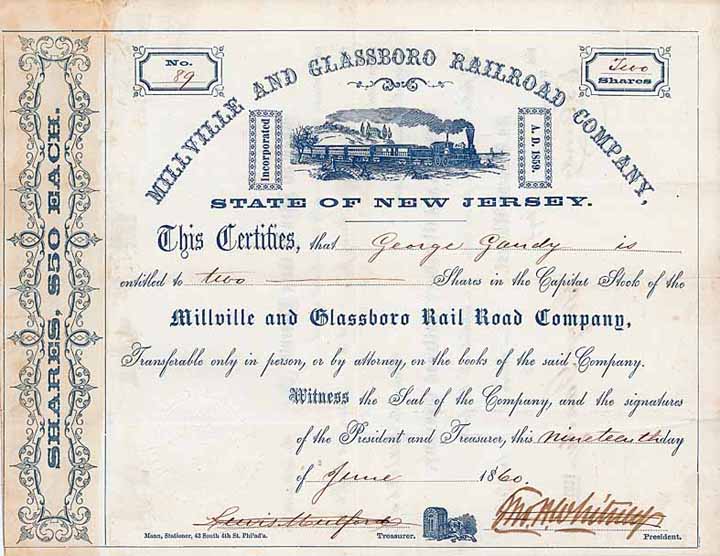 No.
89
MILLVILLE AND GLASSBORO RAILROAD COMPANY,
Two
Shares
Incorporated
A. D. 1859.
STATE OF NEW JERSEY.
SHARES, $50 EACH.
This Certifies, that George Gandy is
entitled to two Shares in the Capital Stock of the
Millville and Glassboro Rail Road Company,
Transferable only in person, or by attorney, on the books of the said Company.
Witness the Seal of the Company, and the signatures
of the President and Treasurer, this nineteenth day
of June 1860.
Lewis Mulford Treasurer.
Thos. H. Whitney President.
Mann, Stationer, 43 South 4th St. Phil'ad'a.